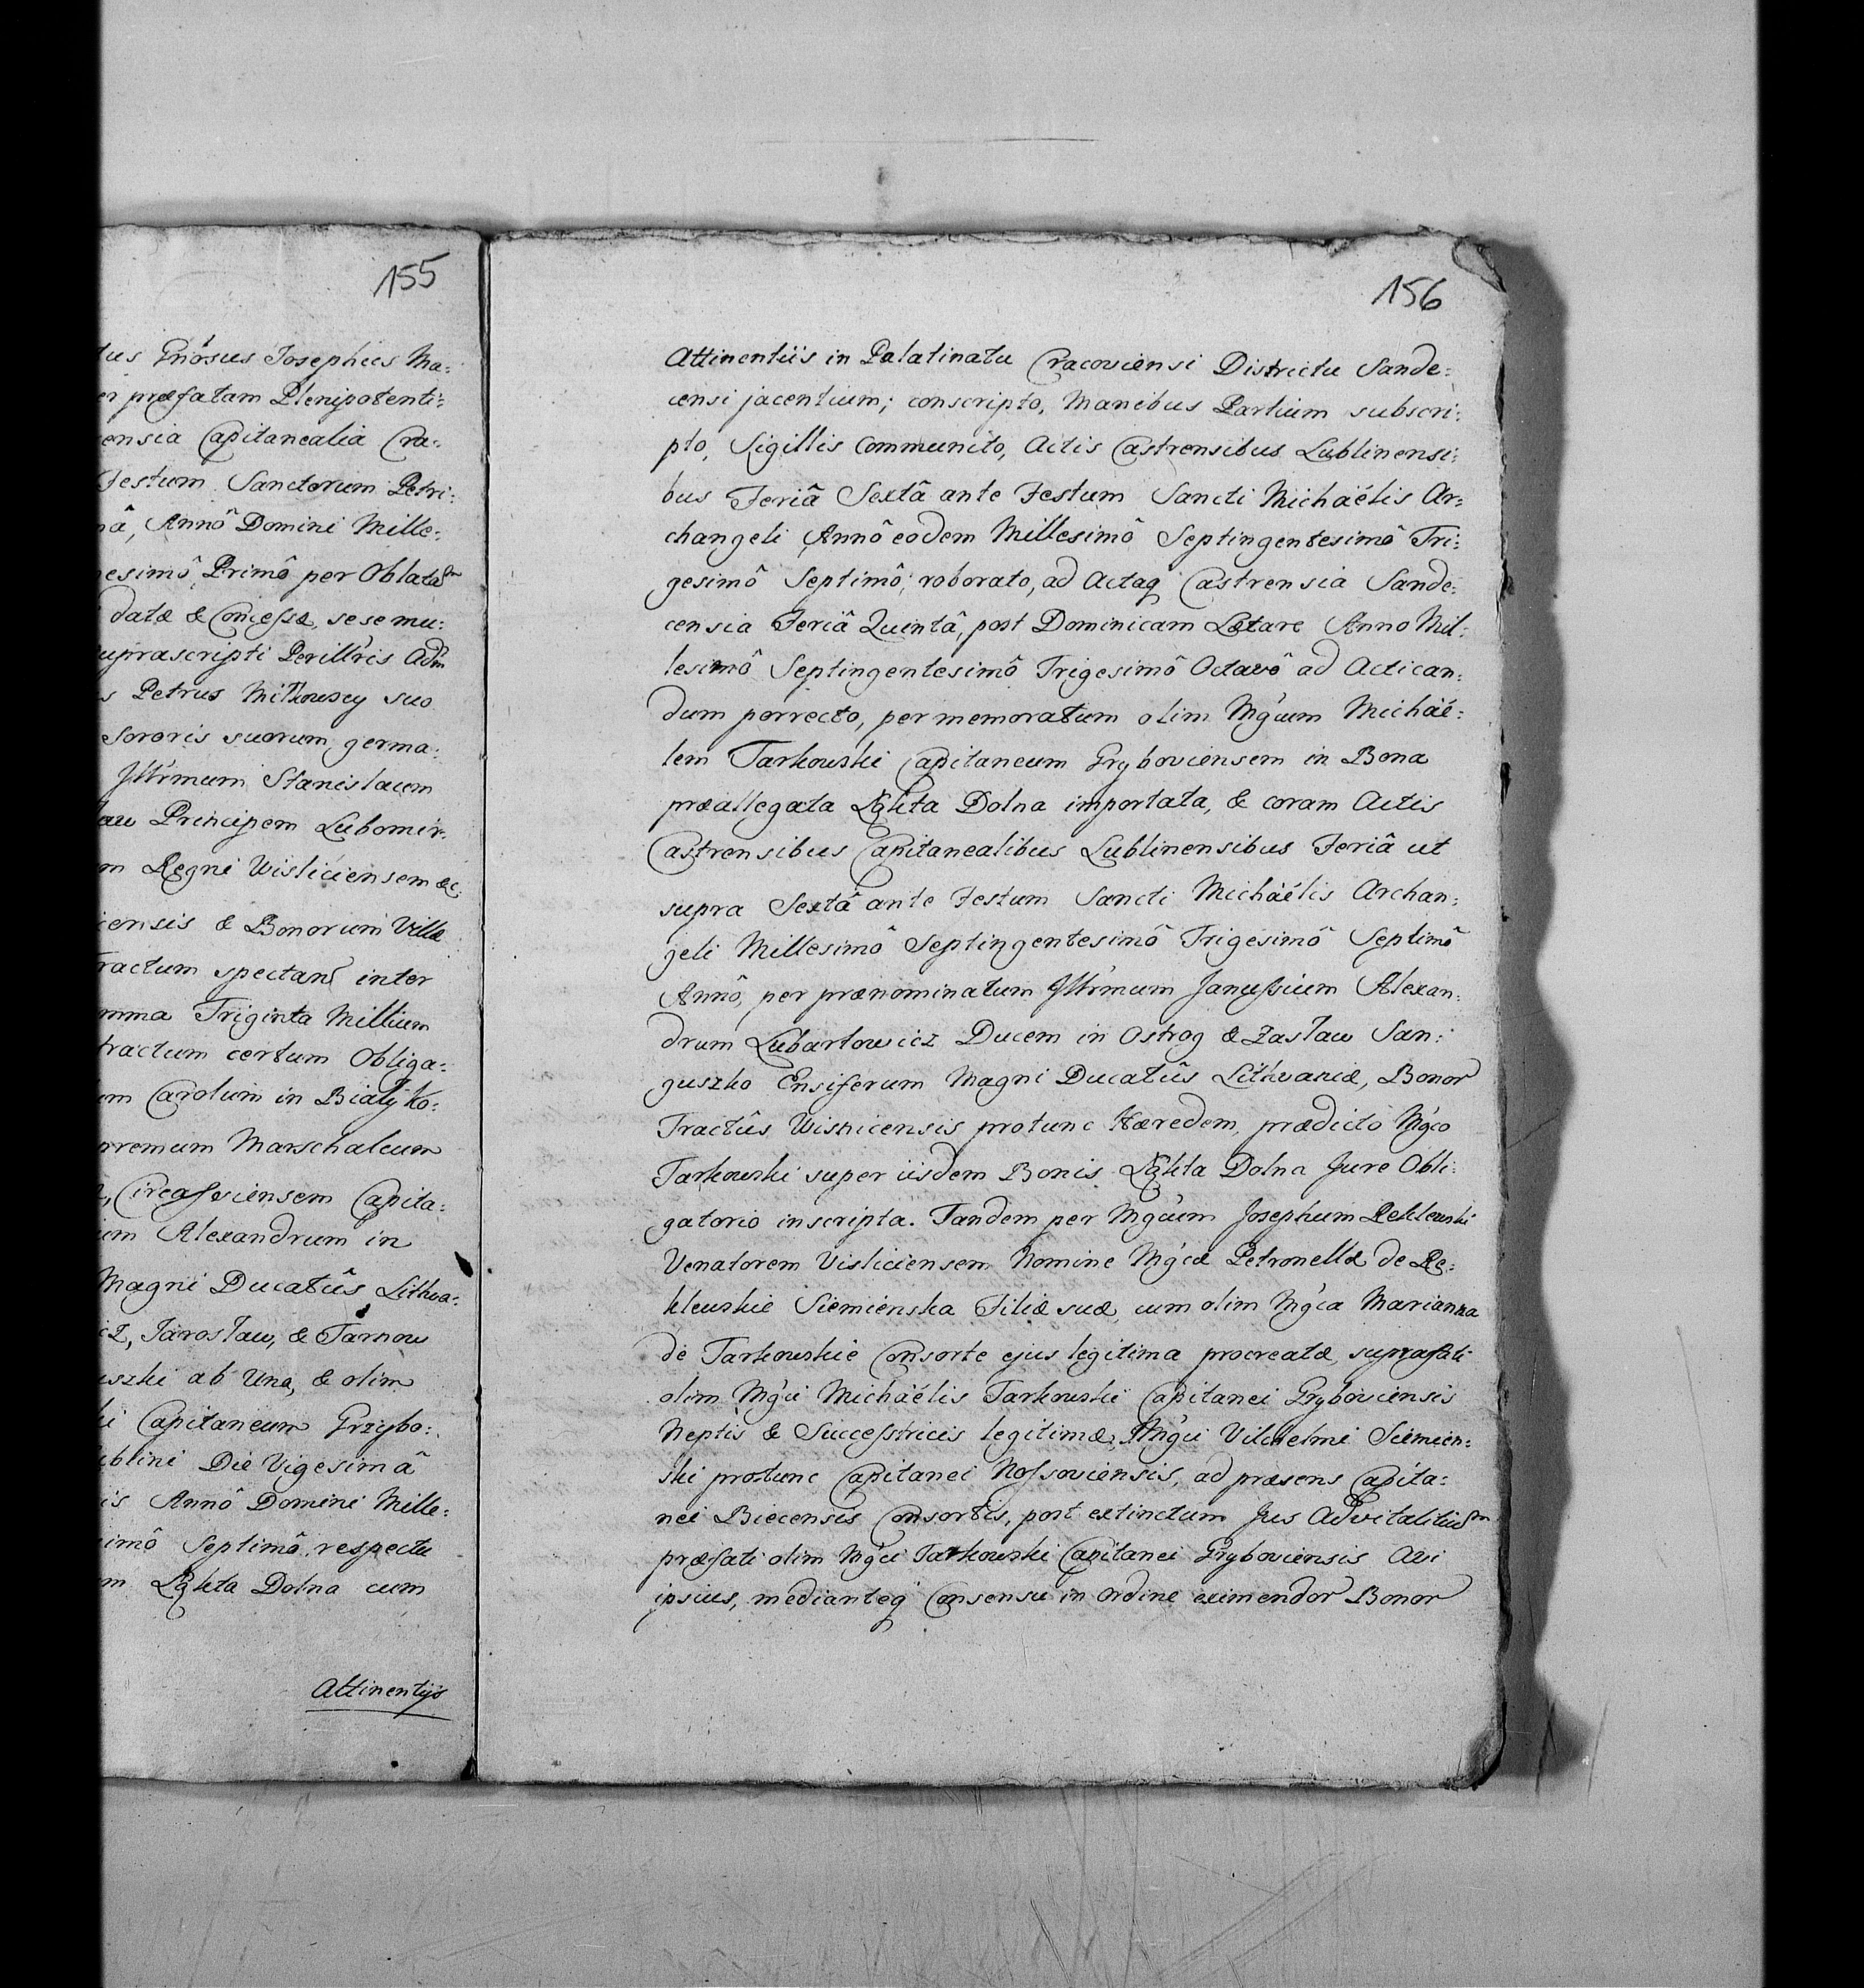 155
tus Gnosus Josephus Ma:
er præfatam Plenipotenti:
ensia Capitanealia Cra:
Festum Sanctorum Petri:
nâ, Annô Domini Mille:
esimô Primô per Oblatam
datæ & Concessæ, sese mu:
upra scripti Perillris Adm
s Petrus Milkowscy suo
Sororis suorum germa:
Illrmum Stanislaum
au Principem Lubomir:
m Regni Wisliciensem &c:
iensis & Bonorum Villæ
ractum spectan inter
mma Triginta Millium
tractum certum Obliga:
um Carolum in Bialyko:
premum Marschalcum
Circassiensem Capita:
um Alexandrum in
Magni Ducatûs Lithua:
icz, Jarosław, & Tarnow
uszki ab Una, & olim
ki Capitaneum Grzybo:
ublini Die Vigesimâ
is Annô Domini Mille:
imô Septimô, respectu
m Łąkta Dolna cum
Attinentijs
156
Attinentiis in Palatinatu Cracoviensi Districtu Sande:
censi jacentium; conscripto, Manibus Partium subscri:
pto, Sigillis Communito, Actis Castrensibus Lublinensi:
bus Feriâ Sextâ ante Festum Sancti Michaëlis Ar:
changeli Annô eodem Millesimô Septingentesimô Tri:
gesimô Septimô; roborato, ad Actaq Castrensia Sande:
censia Feriâ Quintâ, post Dominicam Lætare Anno Mil:
lesimô Septingentesimô Trigesimô Octavô ad Actican:
dum porrecto, per memoratum olim Mgcum Michaë:
lem Tarkowski Capitaneum Gryboviensem in Bona
præallegata Łąkta Dolna importata, & coram Actis
Castrensibus Capitanealibus Lublinensibus Feriâ ut
supra Sextâ ante Festum Sancti Michaëlis Archan:
geli Millesimô Septingentesimô Trigesimô Septimô
Annô, per prænominatum Illrmum Janussium Alexan:
drum Lubartowicz Ducem in Ostrog & Zasław San:
guszko Ensiferum Magni Ducatûs Lithvaniæ, Bonor
Tractûs Wisnicensis protunc Hæredem, prædicto Mgco
Tarkowski super iisdem Bonis Łąkta Dolna Jure Obli:
gatorio inscripta. Tandem per Mgcum Josephum Reklewski
Venatorem Visliciensem Nomine Mgcæ Petronellæ de Re:
klewskie Siemienska Filiæ suæ, cum olim Mgca Marianna
de Tarkowskie Consorte ejus legitima procreatæ, suprafati
olim Mgci Michaëlis Tarkowski Capitanei Gryboviensis
Neptis & Successtricis legitimæ, Mgci Vilhelmi Siemien:
ski protunc Capitanei Nossoviensis, ad præsens Capita:
nei Biecensis Consortis, post extinctum Jus Advitalitium
præfati olim Mgci Tarkowski Capitanei Gryboviensis Avi
ipsius, medianteq Consensu in Ordine eximendor Bonor